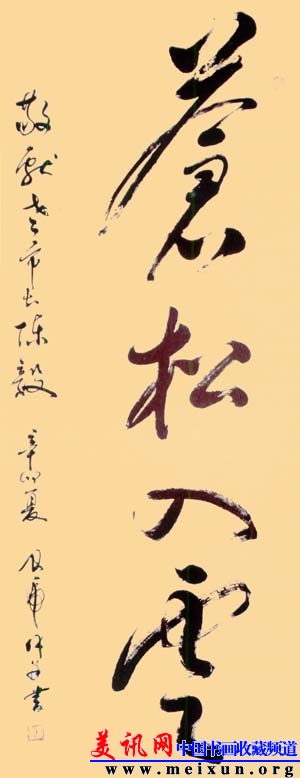 蒼松入雲
敬献老市长陈毅 辛卯夏
美讯网
中国书画收藏频道
www.meixun.org